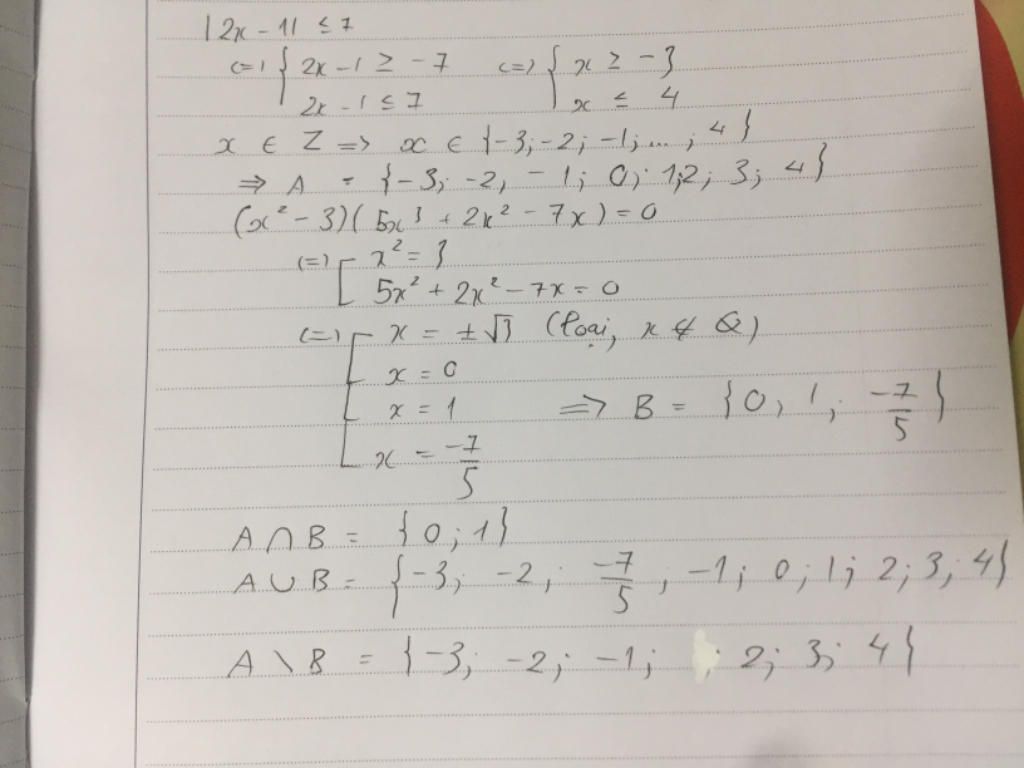 |2x - 1| ≤ 7
<=> { 2x - 1 ≥ -7 <=> { x ≥ -3
2x - 1 ≤ 7 x ≤ 4
x ∈ Z => x ∈ {-3; -2; -1; ...; 4}
=> A = {-3; -2, -1; 0; 1; 2; 3; 4}
(x² - 3)(5x³ + 2x² - 7x) = 0
<=> [ x² = 3
5x² + 2x² - 7x = 0
<=> [ x = ±√3 (loại, x ∉ Q)
x = 0
x = 1 => B = {0, 1, -7/5}
x = -7/5
A ∩ B = {0; 1}
A ∪ B = {-3; -2; -7/5, -1; 0; 1; 2; 3; 4}
A \ B = {-3; -2; -1; ; 2; 3; 4}